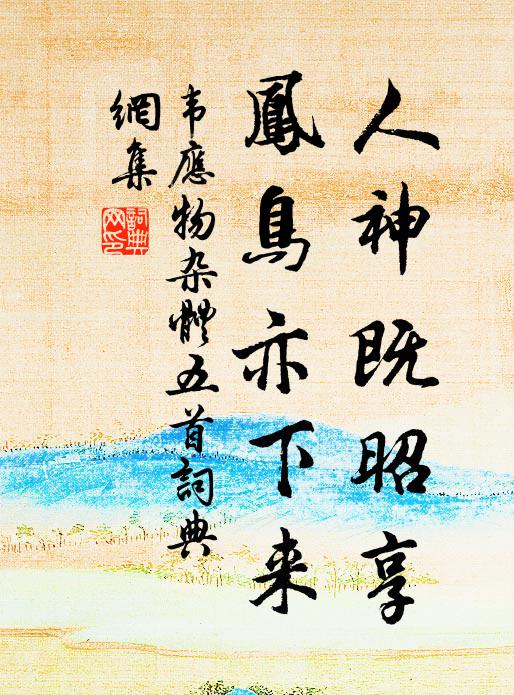 人神既昭享
鳳鳥亦下来
韦應物杂體五首詞典
網集
詞典
网印